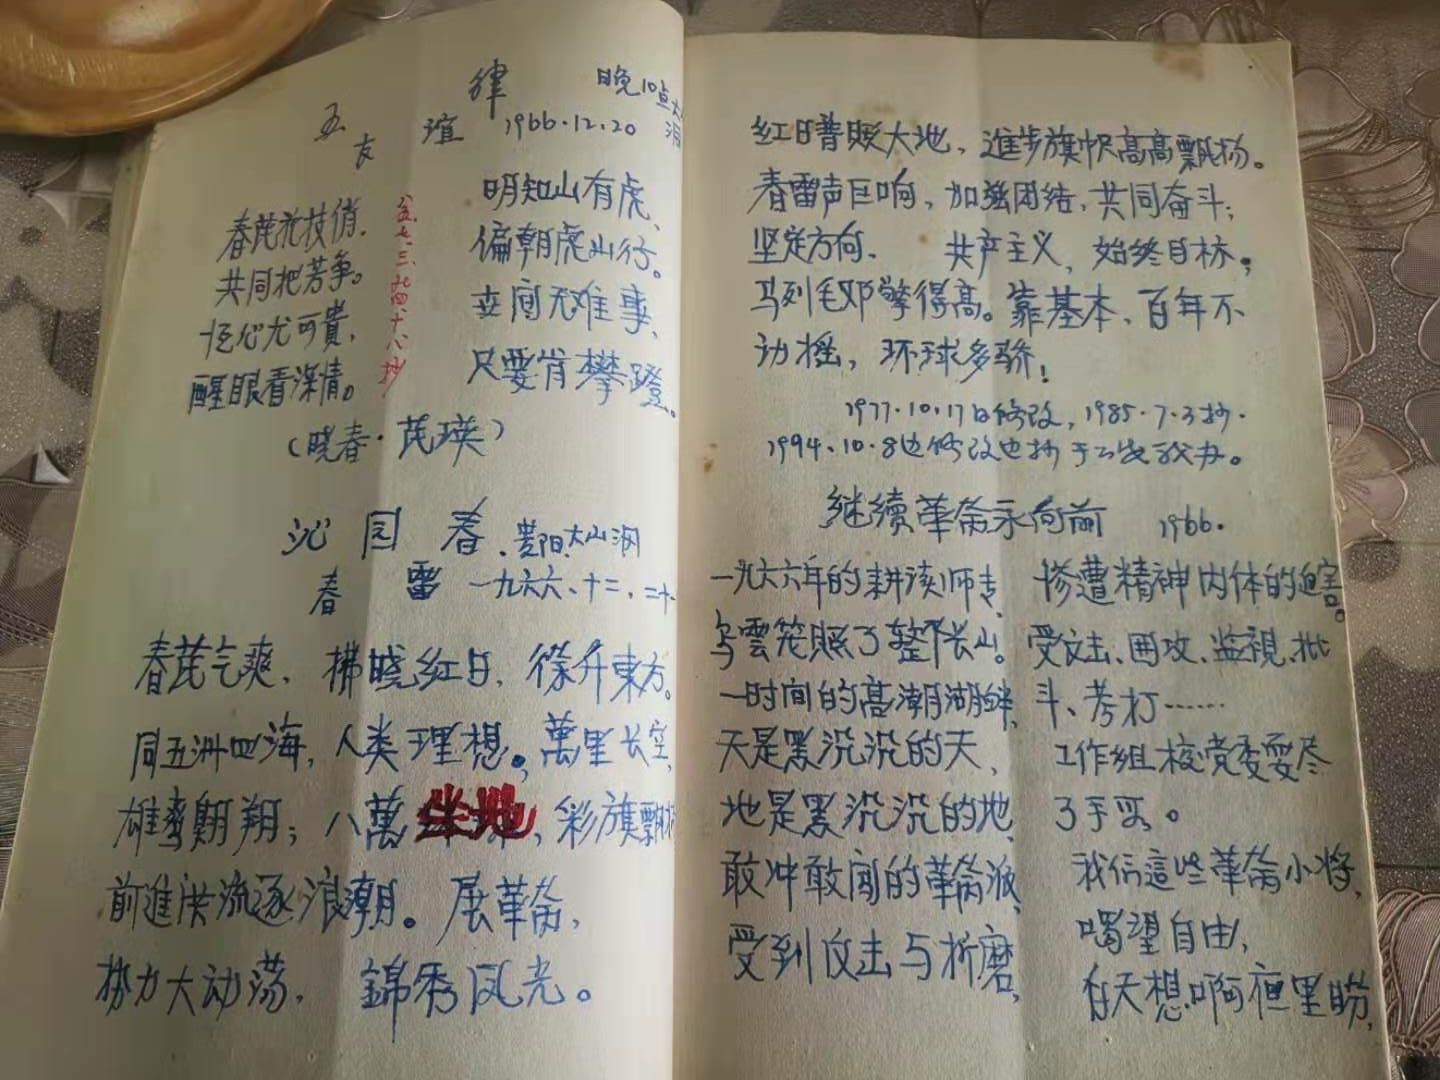 五律
友谊 1966.12.20 晚10点
春芪花枝俏.
共同把苦争。
恒心尤可貴,
醒眼看深情。
明知山有虎、
偏朝虎山行。
世间无难事、
只要肯攀登。
(晓春·芪瑛)
沁园春、贵阳大山洞
春雷 一九六六、十二、二十
春芪气爽, 拂晓红日, 徐升東方。
同五洲四海, 人类理想。萬里长空,
雄鹰翱翔; 八萬坐地, 彩旗飘扬
前進洪流逐浪潮。展革命,
势力大动荡, 錦秀风光。
红日普照大地, 進步旗帜高高飘扬。
春雷声巨响, 加强团结, 共同奋斗;
坚定方向. 共产主义, 始终目标。
马列毛邓擎得高。靠基本、百年不
动摇, 环球多骄!
1977.10.17日修改, 1985.7.3抄.
1994.10.8边修改边抄于
继续革命永向前 1966.
一九六六年的耕读师专,
乌雲笼照了整个长山。
一时间的高潮
天是黑沉沉的天,
地是黑沉沉的地,
敢冲敢闯的革命派,
受到攻击与折磨,
惨遭精神肉体的迫害。
受攻击、围攻、监视、批
斗、拷打……
工作组校党委耍尽
了手段。
我们這些革命小将,
喝望自由,
白天想啊夜里盼,